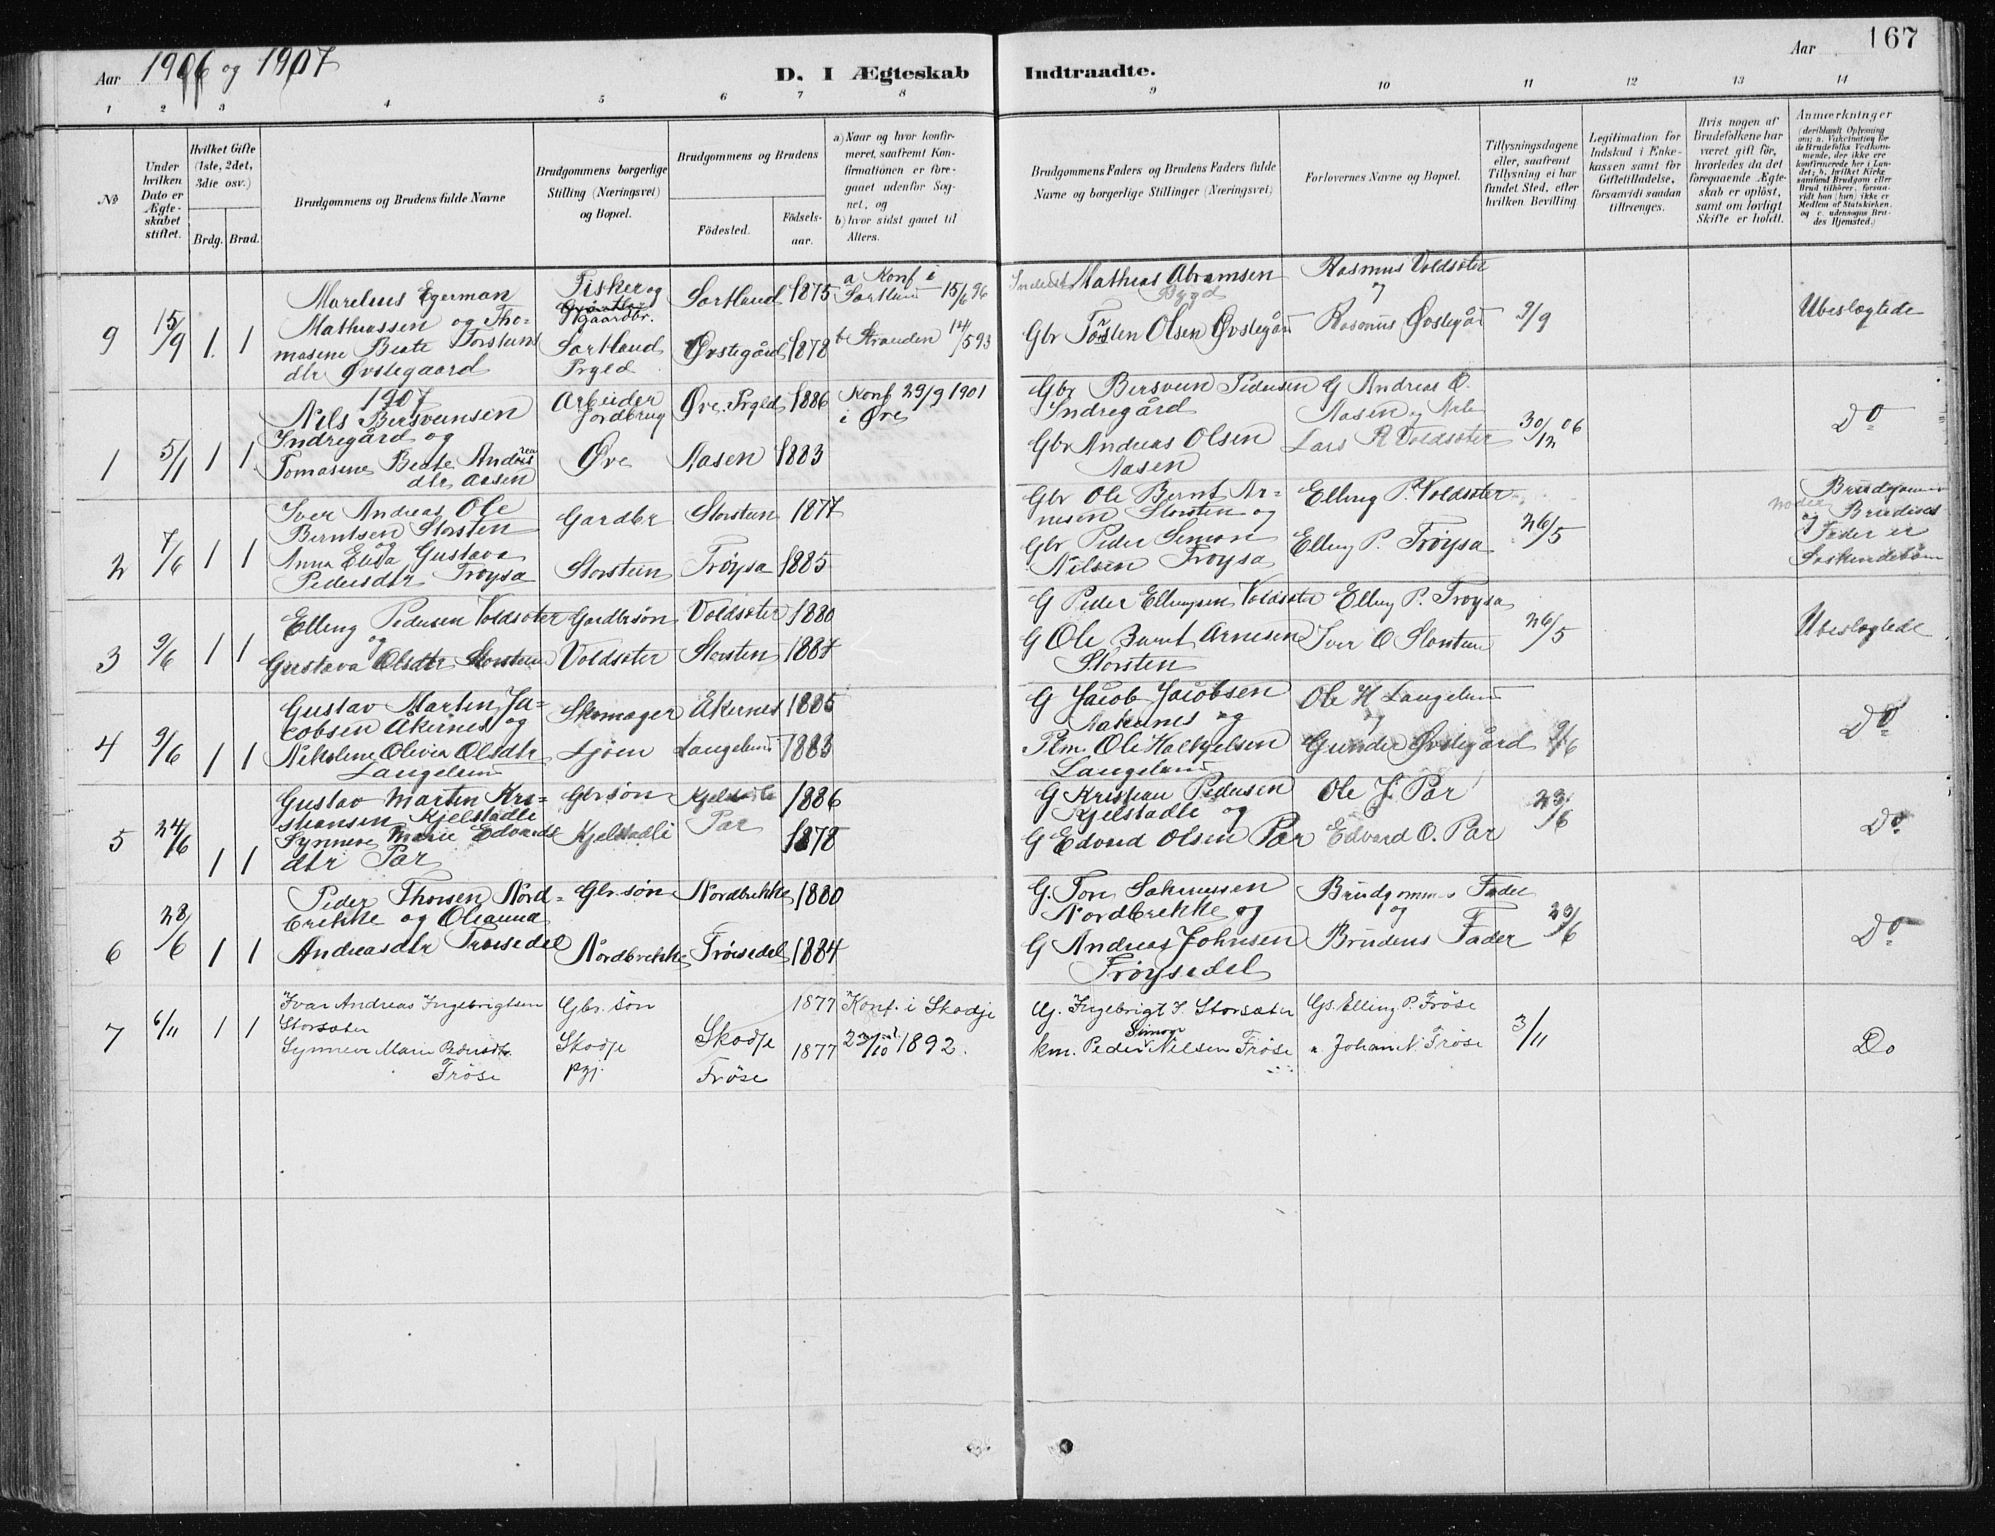 Aar 1906 og 1907
D. I Ægteskab Indtraadte.
Aar 167
1 2 3 4 5 6 7 8 9 10 11 12 13 14
No
Under hvilken Dato er Ægteskabet stiftet.
Hvilket Gifte (1ste, 2det, 3die osv.)
Brdg. Brud.
Brudgommens og Brudens fulde Navne
Brudgommens borgerlige Stilling (Næringsvei) og Bopæl.
Brudgommens og Brudens
Födested. Födsels-aar.
a) Naar og hvor konfirmeret, saafremt Konfirmationen er foregaaet udenfor Sognet, og
b) hvor sidst gaaet til Alters.
Brudgommens Faders og Brudens Faders fulde Navne og borgerlige Stillinger (Næringsvei)
Forlovernes Navne og Bopæl.
Tillysningsdagene eller, saafremt Tillysning ei har fundet Sted, efter hvilken Bevilling.
Legitimation for Indskud i Enkekassen samt for Giftetilladelse, forsaavidt saadan tiltrænges.
Hvis nogen af Brudefolkene har været gift för, hvorledes da det foregaaende Ægteskab er oplöst, samt om lovligt Skifte er holdt.
Anmærkninger
(deriblandt Oplysning om: a. Vaccination for de Brudefolks Vedkommende, der ikke ere konfirmerede her i Landet; b. hvilket Kirkesamfund Brudgom eller Brud tilhører, forsaavidt han (hun) ikke er Medlem af Statskirken, og c. udensogns Brudes Hjemsted.)
9 15/9 1 1
Marelius Egerman
Mathiassen og Tho-
masine Beate Torstens
dtr Øvstegaard
Fisker og
Gaardbr.
Sortland
Prgld
Sortland 1875
Øvstegård 1878
a Konf i
Sortland 15/6 96
b Stranden 14/5 93
Mathias Abramsen
Bygd
Gbr Torsten Olsen Øvstegård
Rasmus Voldsæter
Rasmus Øvstegår
9/9
Ubeslægtede
1907
1 5/1 1 1
Nils Bersveinsen
Indregård og
Tomasine Beate Andreas
dtr Aasen
Arbeider
Jordbrug
Øre
Øre Prgld 1886
Aasen 1883
Konf 29/9 1901
i Øre
Gbr Bersvein Pedersen
Indregård
Gbr Andreas Olsen
Aasen
G Andreas O.
Aasen og
Lars R Voldsæter
30/12 06
Do
2 7/6 1 1
Iver Andreas Ole
Berntsen Storsten
og
Anna Elida Gustava
Pedersdtr Trøysa
Gardbr
Storstein
Storstein 1877
Trøysa 1885
Gbr Ole Bernt Ar-
nesen Storsten og
Gbr Peder Simon
Nilsen Trøysa
Elling P. Voldsæter
Elling P. Trøysa
26/5
Brudgommens
moder
og Brudens
Fader er
Søskendebørn
3 9/6 1 1
Elling Pedersen Voldsæter
og
Gustava Olsdtr Storstein
Gardbrsøn
Voldsæter
Voldsæter 1880
Storsten 1887
G Peder Ellingsen Voldsæter
G Ole Bernt Arnesen
Storsten
Elling P. Trøysa
Iver O Storstein
26/5
Ubeslægtede
4 9/6 1 1
Gustav Martin Ja-
cobsen Åkernes og
Nikoline Olivia Olsdtr
Langelund
Skomager
Sjøen
Åkernes 1885
Langelund 1883
G Jacob Jacobsen
Aakernes og
Plm. Ole Halkjelsen
Langelund
Ole H Langelund
og
Gunder Øvstegård
9/6
Do
5 24/6 1 1
Gustav Martin Kri-
stiansen Kjelstadli
Synneve Marie Edvards
dtr Par
Gbrsøn
Kjelstadli
Kjelstadli 1886
Par 1878
G Kristian Pedersen
Kjelstadli og
G Edvard Olsen Par
Ole J. Par
Edvard O. Par
23/6
Do
6 28/6 1 1
Peder Thorsen Nord-
brekke og Oleanna
Andreasdtr Trøisedel
Gbr. søn
Nordbrekke
Nordbrekke 1880
Trøisedel 1884
G. Tor Sakariassen
Nordbrekke og
G Andreas Johnsen
Trøysedel
Brudgommens Fader
og
Brudens Fader
23/6
Do
7 6/11 1 1
Ivar Andreas Ingebrigtsen
Storsæter
Synneve Marie Pedersdtr.
Frøse
Gbr. søn
Skodje
pgj.
Skodje 1877
Frøse 1877
Konf. i Skodje
23/10 1892.
Gj. Ingebrigt I. Storsæter
Simon
km. Peder Nilsen Frøse
Gs. Elling P. Frøse
" Johan N. Frøse
3/11
Do